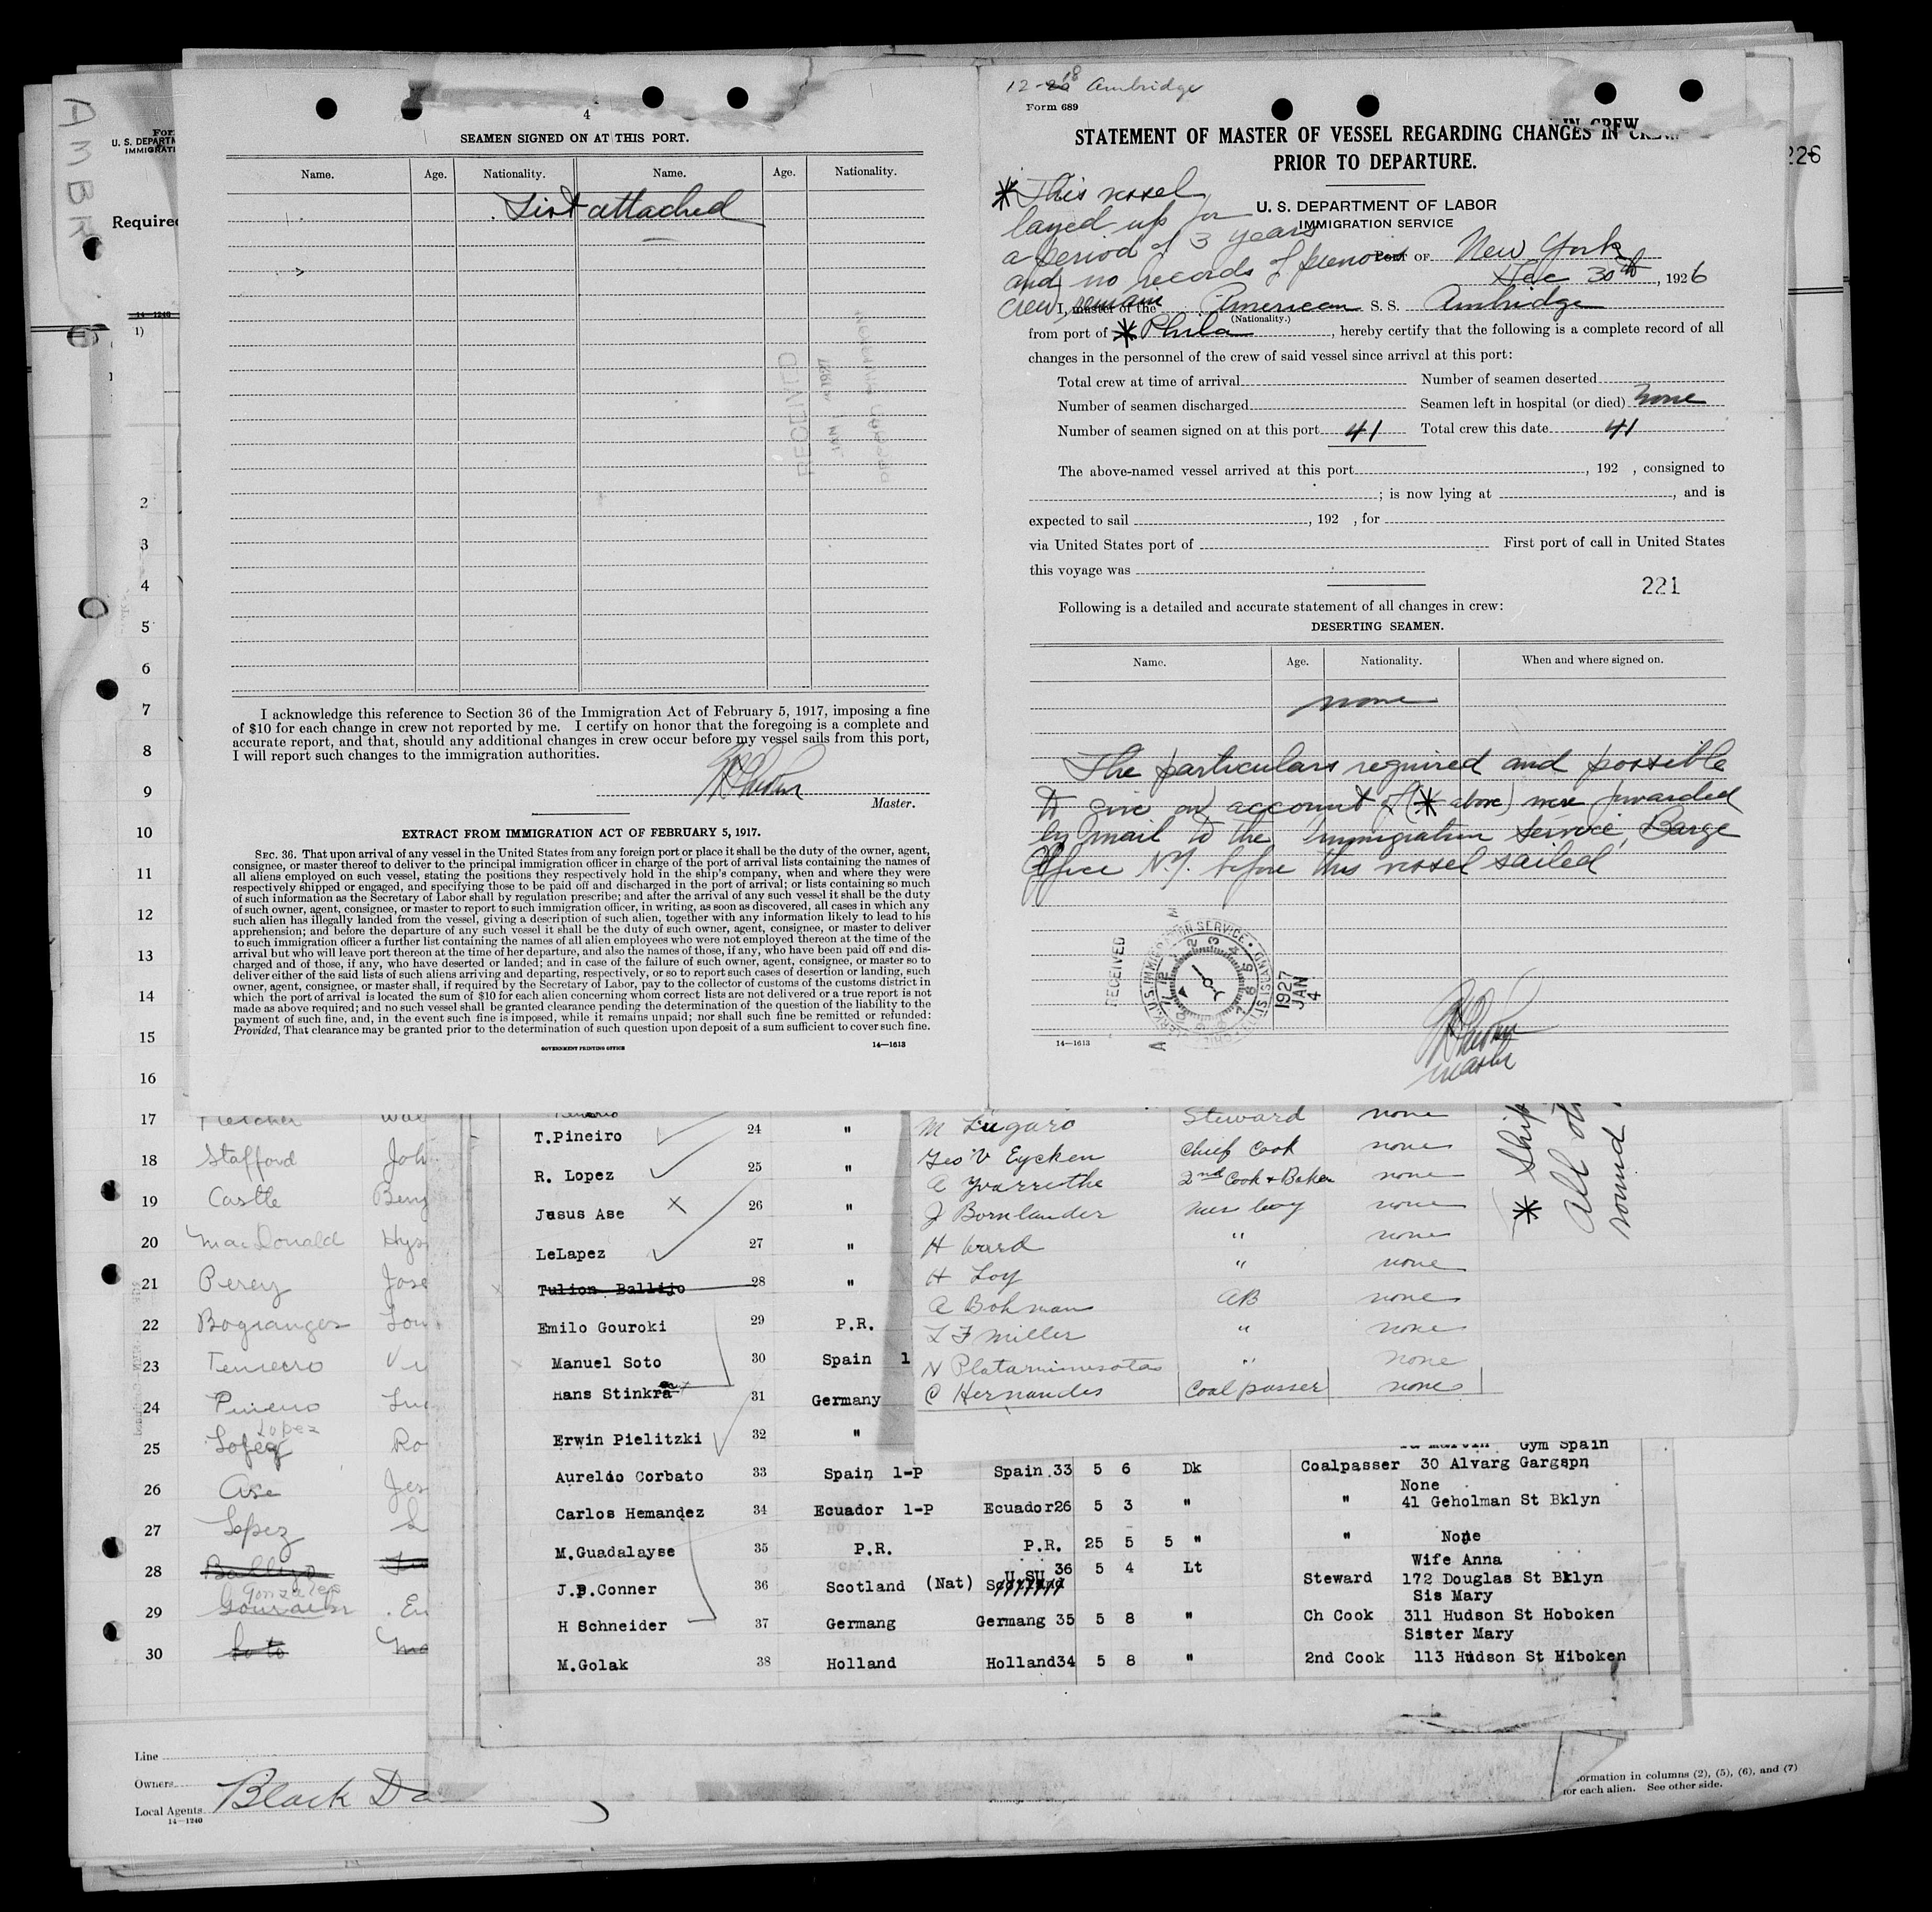 4
SEAMEN SIGNED ON AT THIS PORT.
Name. Age. Nationality. Name. Age. Nationality.
List attached
RECEIVED
I acknowledge this reference to Section 36 of the Immigration Act of February 5, 1917, imposing a fine
of $10 for each change in crew not reported by me. I certify on honor that the foregoing is a complete and
accurate report, and that, should any additional changes in crew occur before my vessel sails from this port,
I will report such changes to the immigration authorities.
Master.
EXTRACT FROM IMMIGRATION ACT OF FEBRUARY 5, 1917.
SEC. 36. That upon arrival of any vessel in the United States from any foreign port or place it shall be the duty of the owner, agent,
consignee, or master thereof to deliver to the principal immigration officer in charge of the port of arrival lists containing the names of
all aliens employed on such vessel, stating the positions they respectively hold in the ship's company, when and where they were
respectively shipped or engaged, and specifying those to be paid off and discharged in the port of arrival; or lists containing so much
of such information as the Secretary of Labor shall by regulation prescribe; and after the arrival of any such vessel it shall be the duty
of such owner, agent, consignee, or master to report to such immigration officer, in writing, as soon as discovered, all cases in which any
such alien has illegally landed from the vessel, giving a description of such alien, together with any information likely to lead to his
apprehension; and before the departure of any such vessel it shall be the duty of such owner, agent, consignee, or master to deliver
to such immigration officer a further list containing the names of all alien employees who were not employed thereon at the time of the
arrival but who will leave port thereon at the time of her departure, and also the names of those, if any, who have been paid off and dis-
charged and of those, if any, who have deserted or landed; and in case of the failure of such owner, agent, consignee, or master so to
deliver either of the said lists of such aliens arriving and departing, respectively, or so to report such cases of desertion or landing, such
owner, agent, consignee, or master shall, if required by the Secretary of Labor, pay to the collector of customs of the customs district in
which the port of arrival is located the sum of $10 for each alien concerning whom correct lists are not delivered or a true report is not
made as above required; and no such vessel shall be granted clearance pending the determination of the question of the liability to the
payment of such fine, and, in the event such fine is imposed, while it remains unpaid; nor shall such fine be remitted or refunded:
Provided, That clearance may be granted prior to the determination of such question upon deposit of a sum sufficient to cover such fine.
GOVERNMENT PRINTING OFFICE 14—1613
12-18 Ambridge
Form 689
STATEMENT OF MASTER OF VESSEL REGARDING CHANGES IN CREW
PRIOR TO DEPARTURE.
U. S. DEPARTMENT OF LABOR
IMMIGRATION SERVICE
* This vessel
layed up for
a period of 3 years
and no records of previous
crew remain
PORT OF New York
Dec 30th, 1926
I, master of the American S. S. Ambridge
(Nationality.)
from port of * Phila, hereby certify that the following is a complete record of all
changes in the personnel of the crew of said vessel since arrival at this port:
Total crew at time of arrival Number of seamen deserted
Number of seamen discharged Seamen left in hospital (or died) None
Number of seamen signed on at this port 41 Total crew this date 41
The above-named vessel arrived at this port , 192 , consigned to
; is now lying at , and is
expected to sail , 192 , for
via United States port of First port of call in United States
this voyage was
221
Following is a detailed and accurate statement of all changes in crew:
DESERTING SEAMEN.
Name. Age. Nationality. When and where signed on.
none
The particulars required and possible
to give on account of (* above) were forwarded
by mail to the Immigration Service, Barge
Office N.Y. before this vessel sailed
RECEIVED
1927 JAN 4
14—1613
master
AMBR
U. S. DEPARTM
IMMIGRATI
Required
226
14-1240
1)
2
3
4
5
6
7
8
9
10
11
12
13
14
15
16
17 Fletcher Wal
18 Stafford Joh
19 Castle Benj
20 MacDonald Hys
21 Perey Jose
22 Bogranges Lou
23
24 Pineiro
25 Lopez Ro
Lopez
26 Ase Jes
27 Lopez
28 Ballijo
29 Gonzales
30 Soto Ma
Line
Owners
Local Agents Black Da
14—1240
T.Pineiro 24 "
R. Lopez 25 "
Jusus Ase 26 "
LeLapez 27 "
Tulion Ballijo 28 "
Emilo Gouroki 29 P.R.
Manuel Soto 30 Spain 1
Hans Stinkra 31 Germany
Erwin Pielitzki 32 "
Gym Spain
Aureldo Corbato 33 Spain 1-P Spain 33 5 6 Dk Coalpasser 30 Alvarg Gargspn
None
Carlos Hemandez 34 Ecuador 1-P Ecuador26 5 3 " " 41 Geholman St Bklyn
M.Guadalayse 35 P.R. P.R. 25 5 5 " " None
Wife Anna
J.P.Conner 36 Scotland (Nat) U SU 36 5 4 Lt Steward 172 Douglas St Bklyn
Sis Mary
H Schneider 37 Germang Germang 35 5 8 " Ch Cook 311 Hudson St Hoboken
Sister Mary
M.Golak 38 Holland Holland34 5 8 " 2nd Cook 113 Hudson St Hiboken
M Lugaro Steward none
Geo V Eycken Chief Cook none
2nd Cook + Baker none
J Bornlander Mess boy none
H Ward " none
H Loy " none
A Bohman AB none
L F Miller " none
N " none
C Hernandes Coal passer none
* Ship
All ot
round
ormation in columns (2), (5), (6), and (7)
for each alien. See other side.